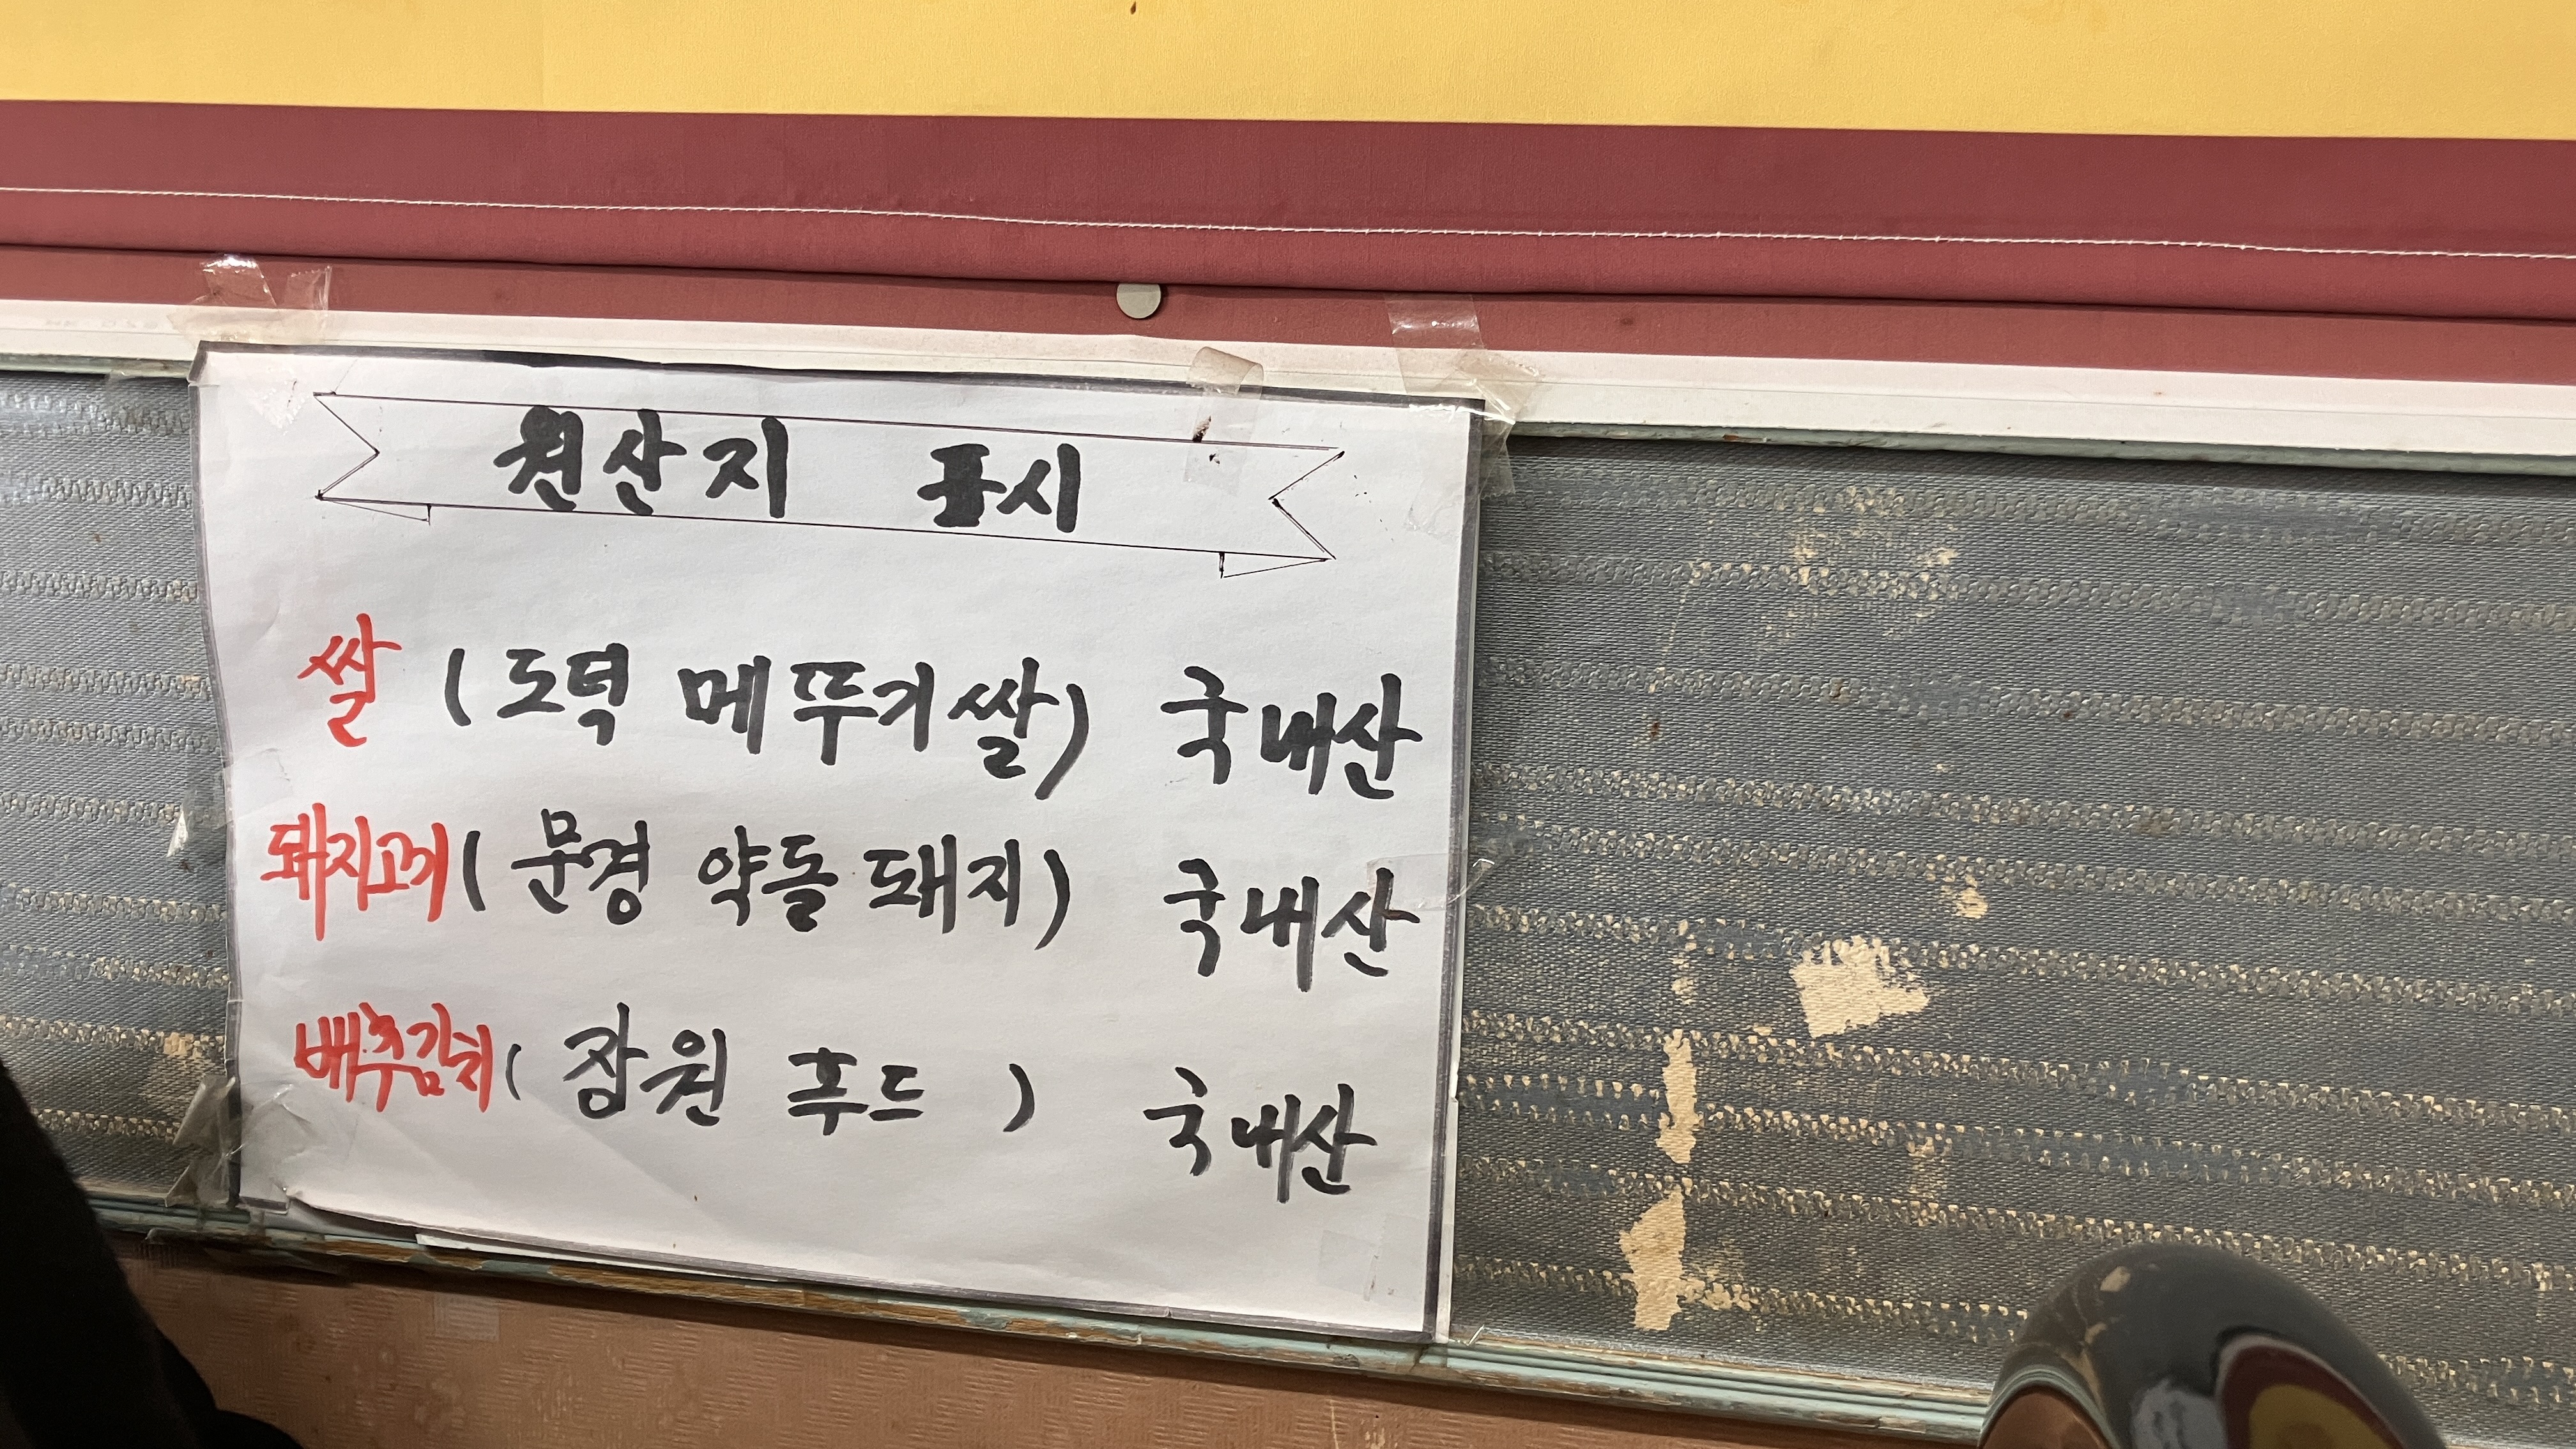 원산지 표시
쌀 (도덕 메뚜기쌀) 국내산
돼지고기 (문경 약돌돼지) 국내산
배추김치 (장원 푸드) 국내산